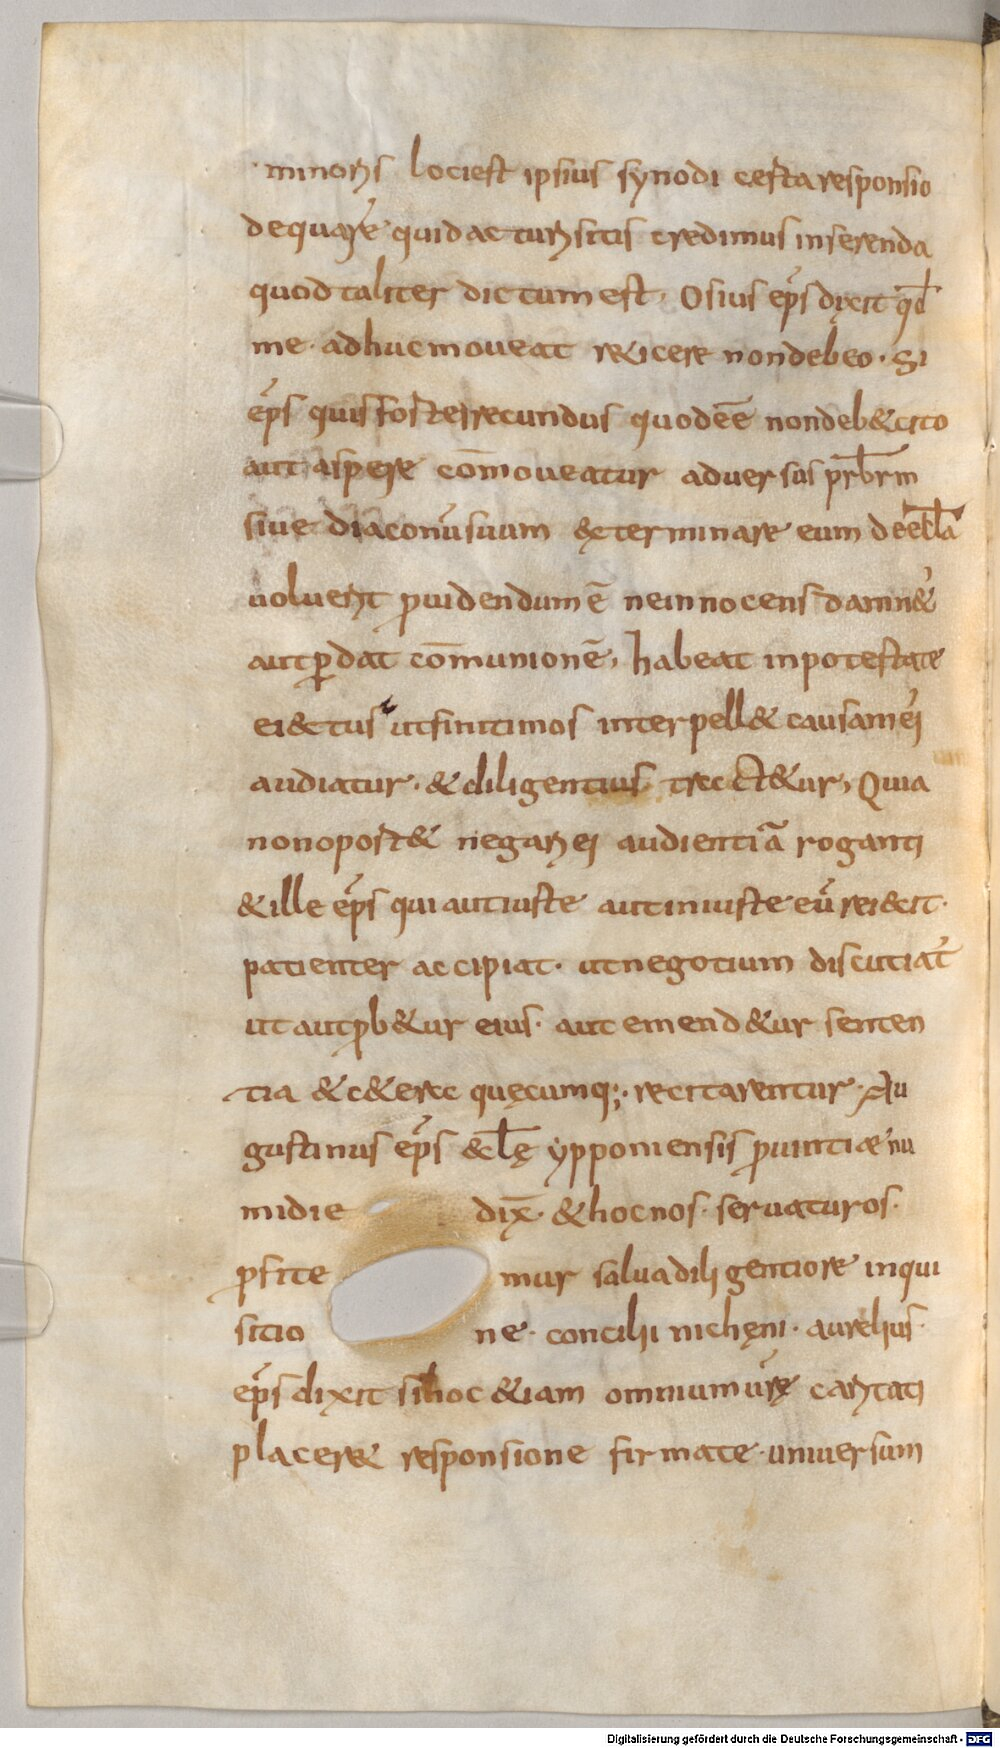 minoris loci est ipsius synodi certa responsio
de qua re quid acturi sitis credimus inserenda
quod taliter dictum est, Osius ep̃s dixit qđ
me adhuc moueat reicere non debeo. Si
ep̃s quis forte irecundus quod eē non deb& cito
aut aspere cōmoueatur aduersus prb̄rm
siue diaconū suum exterminare eum de eccl̄a
uoluerit ꝓuidendum ē ne innocens damn&ʼ
aut ꝑdat cōmunionē, habeat in potestate
ei&tus ut finitimos interpell& causam ei
audiatur. & diligentius trect&ur, Quia
non oport& negari ei audientiā roganti
& ille ep̃s qui aut iuste aut iniuste eū rei&cit.
patienter accipiat. ut negotium discutiatʼ
ut aut ꝓb&ur eius. aut emend&ur senten
tia & c&ere quęcumq;. recitarentur. Au
gustinus ep̃s eccl̄ę ypponiensis ꝓuintiae nu
midie dix̄. & hoc nos. seruaturos.
ꝓfite mur salua diligentiore inqui
sitio ne. concilii nichęni. aurelius.
ep̃s dixit si hoc &iam omnium ur̄ę caritati
placere responsione firmate. uniuersum
Digitalisierung gefördert durch die Deutsche Forschungsgemeinschaft - DFG